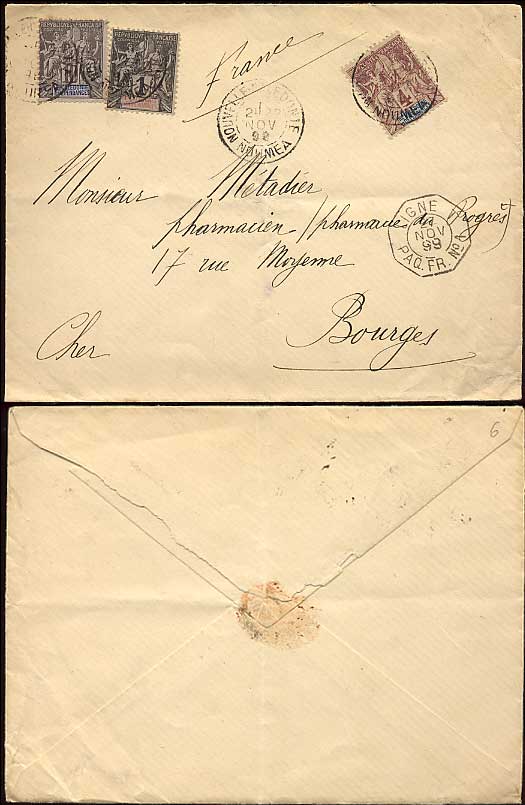 RÉPUBLIQUE FRANÇAISE
RÉPUBLIQUE FRANÇAISE
1
France
NOUVELLE CALÉDONIE
NOV
99
NOUMÉA
NOUMÉA
Monsieur Métadier
pharmacien - pharmacie du Progrès
17 rue Moyenne
Cher Bourges
LIGNE
NOV
99
PAQ. FR. No
6